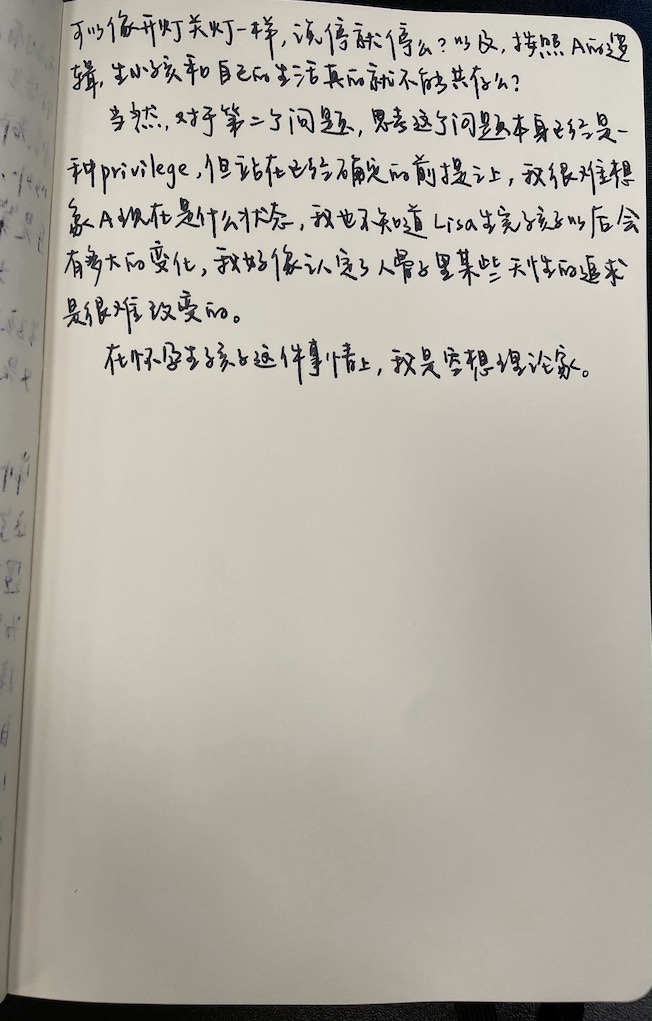 可以像开灯关灯一样，说停就停么？以及，按照A的逻
辑，生小孩和自己的生活真的就不能共存么？
当然，对于第二个问题，思考这个问题本身已经是一
种privilege，但站在已经确定的前提之上，我很难想
象A现在是什么状态，我也不知道Lisa生完孩子以后会
有多大的变化，我好像认定了人骨子里某些天性的追求
是很难改变的。
在怀孕生孩子这件事情上，我是空想理论家。